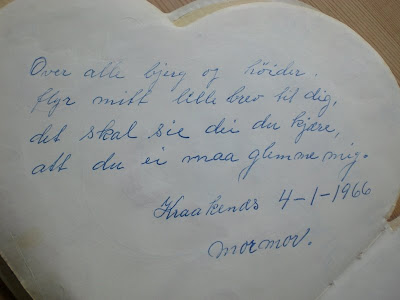 Over alle bjerg og höider.
flyr mitt lille brev til dig,
det skal sie dei du kjære,
att du ei maa glemme mig.
Kraakenes 4-1-1966
mormor.